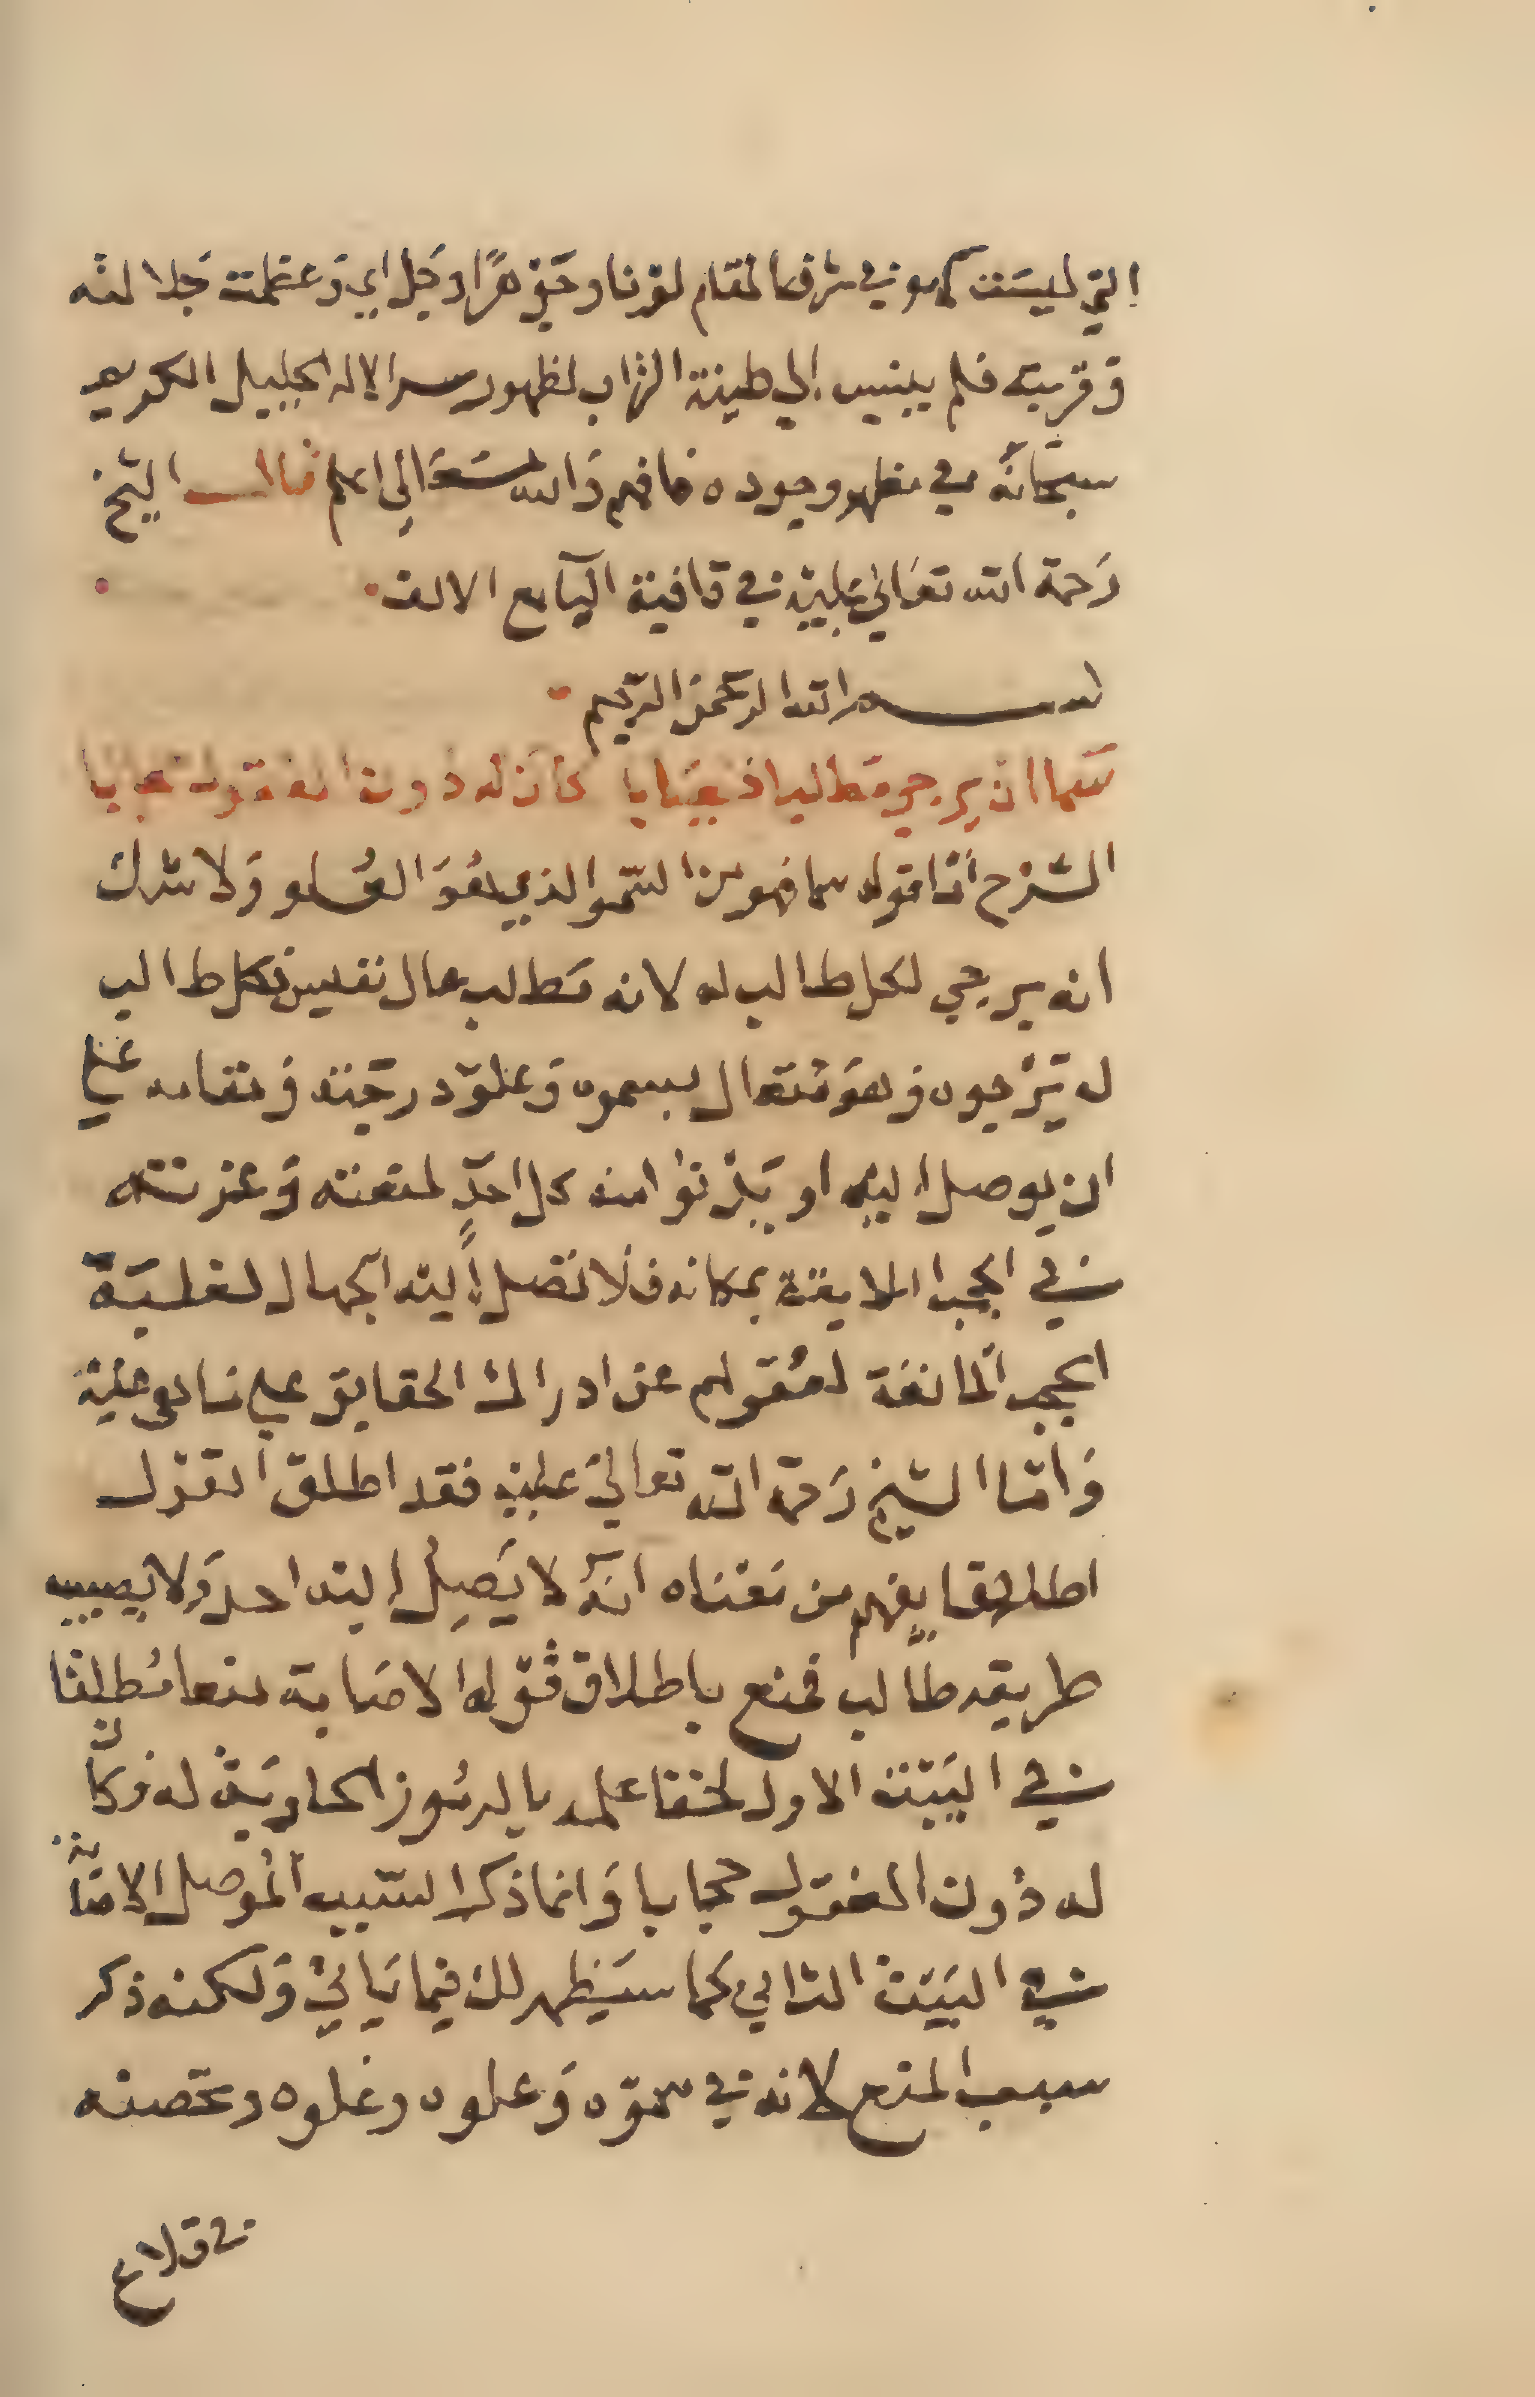 التي ليست كهو في شرف المقام لونا وجوهرا وجل اي وعظمت جلالته
وقربت فلم ينسب الي طينة التراب لظهور سر الاله الجليل الكريم
سبحانه في مظهر وجوده فافهم والله تعالى اعلم قال الشيخ
رحمة الله تعالي عليه في قافية الياء مع الالف
بسم الله الرحمن الرحيم
سما ان يرجي مطلبا اذ كان له دون العقول حجابا
الشرح اما قوله سما فهو من السمو الذي هو العلو ولا شك
انه يرجي لكل طالب له لانه مطلب عال نفيس فكل طالب
له يرجوه وهو متعال بسموه وعلو درجته ومقامه علي
ان يوصل اليه او يدنوا منه كل احد لمنعته وعزته
في الحجب اللايقة بمكانه فلا تصل اليه الجهال لغلبة
الحجب المانعة لعقولهم عن ادراك الحقايق علي ما هي عليه
واما الشيخ رحمة الله تعالي عليه فقد اطلق القول
اطلاقا يفهم من معناه انه لا يصل اليه احد ولا يصيب
طريقه طالب فمنع باطلاق قوله الاصابة منعا مطلقا
في البيت الاول لخفا علمه بالرموز الحاوية له وكان
له دون العقول حجابا وانما ذكر السبب الموصل الاصابة
في البيت الثاني كما سيظهر لك فيما ياتي ولكنه ذكر
سبب المنع لانه في سموه وعلوه وغلوه وتحصنه
في قلاع